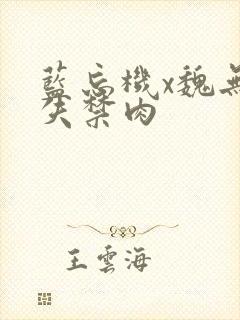 藍忘機x魏無
失禁肉
王雲海